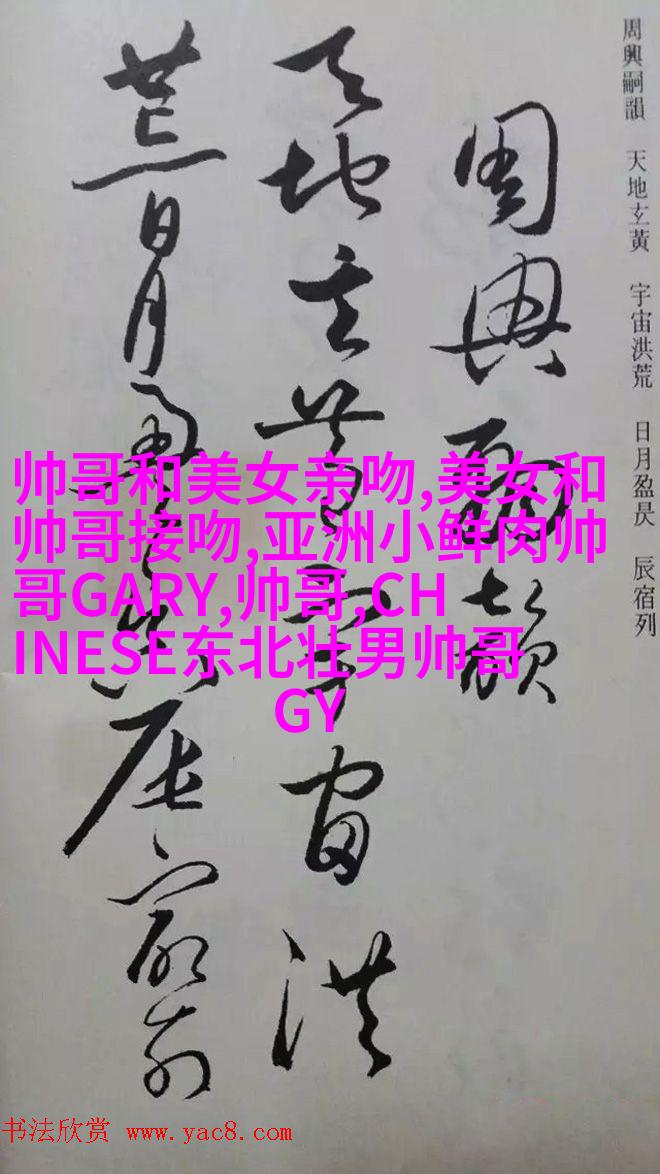 周興嗣韻　天地玄黃　宇宙洪荒　日月盈昃　辰宿列
周興嗣韻
天地玄黃宇宙洪
荒日月盈昃辰宿列
帅哥和美女亲吻,美女和
帅哥接吻,亚洲小鲜肉帅
哥GARY,帅哥,CH
INESE东北壮男帅哥
GY
书法欣赏 www.yac8.com